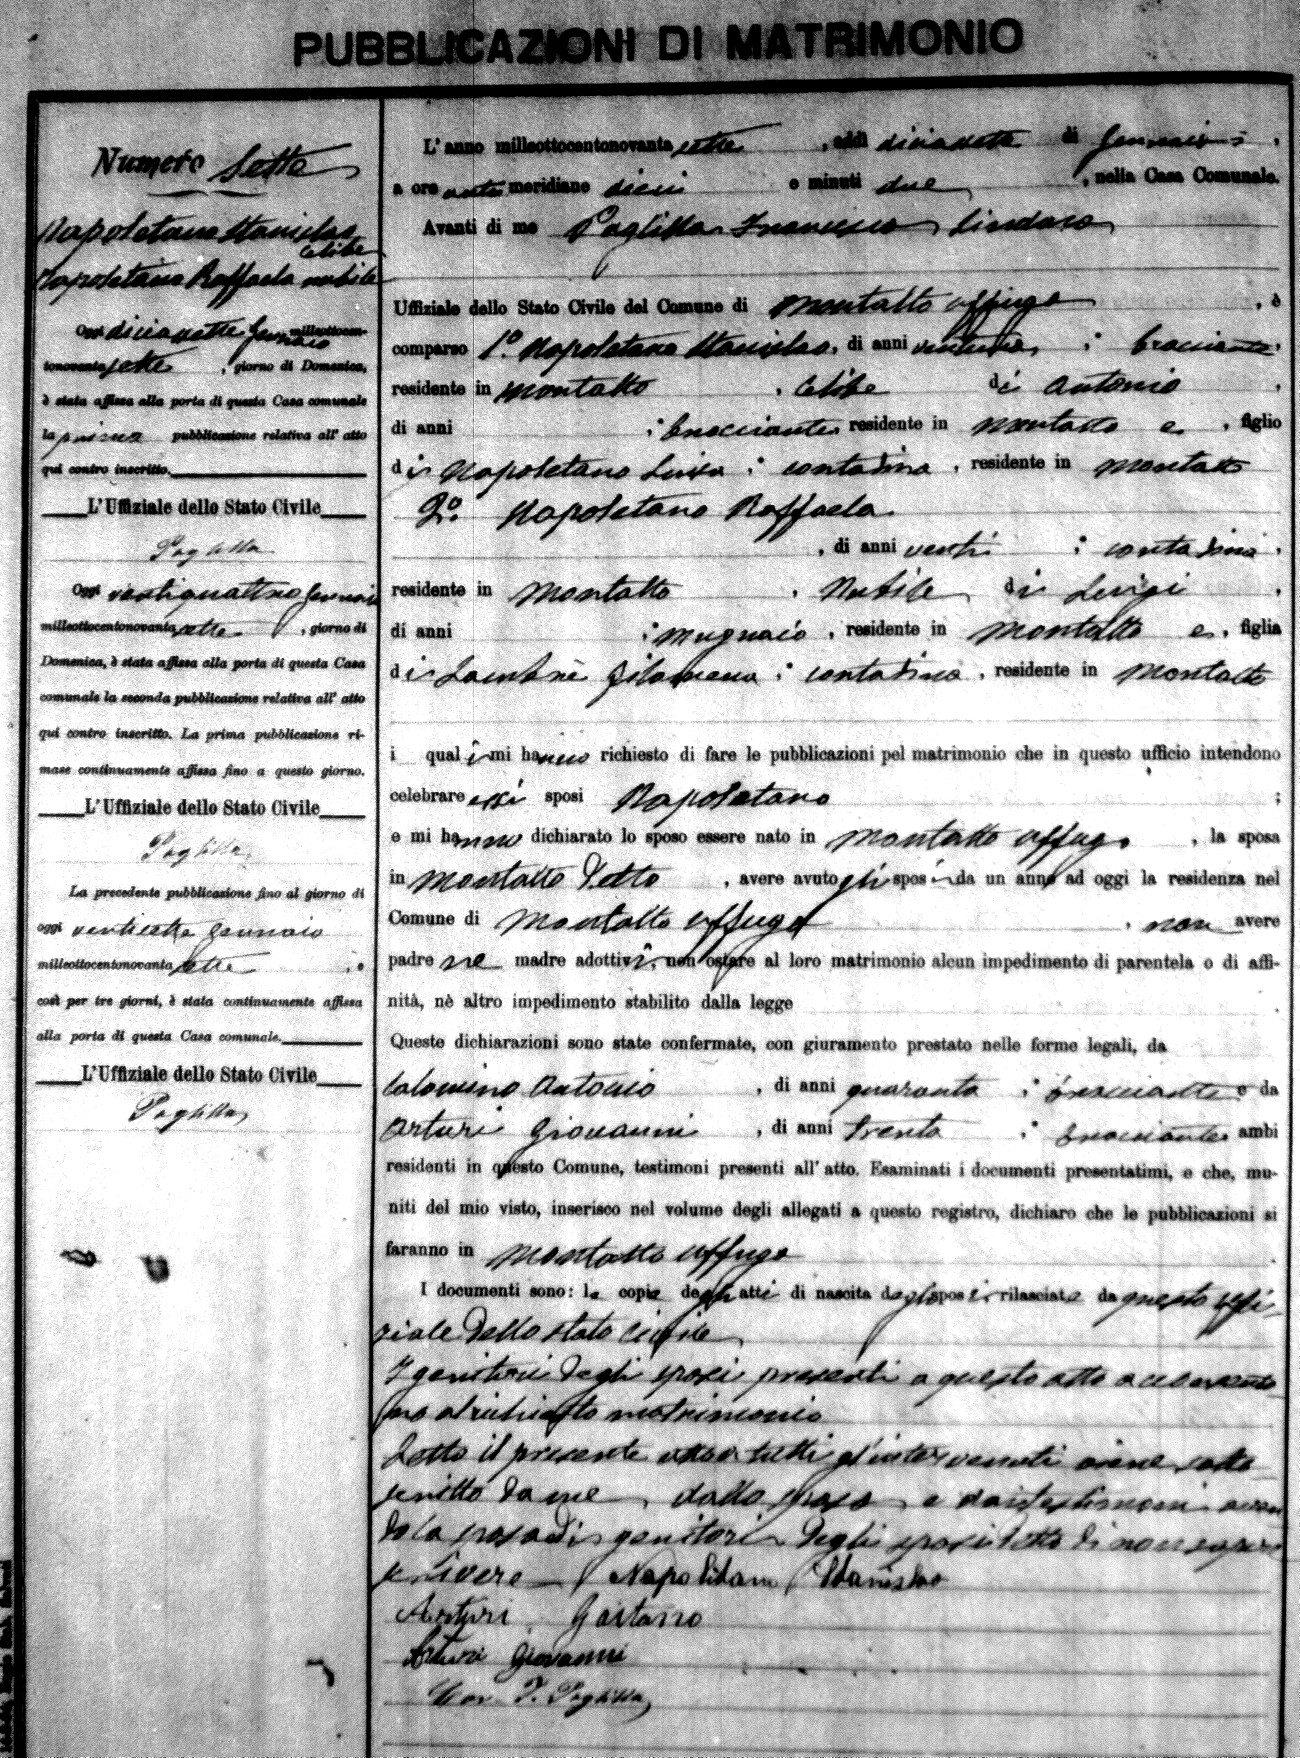 PUBBLICAZIONI DI MATRIMONIO
Numero Sette
Napoletano Stanislao
celibe
Napoletano Raffaela nubile
Oggi diciasette Gennaio milleottocen-
tonovanta sette, giorno di Domenica,
è stata affissa alla porta di questa Casa comunale
la prima pubblicazione relativa all' atto
qui contro inscritto.
L'Uffiziale dello Stato Civile
Paglilla
Oggi ventiquattro Gennaio
milleottocentonovanta sette, giorno di
Domenica, è stata affissa alla porta di questa Casa
comunale la seconda pubblicazione relativa all' atto
qui contro inscritto. La prima pubblicazione ri-
mase continuamente affissa fino a questo giorno.
L'Uffiziale dello Stato Civile
Paglilla
La precedente pubblicazione fino al giorno di
oggi ventisette Gennaio
milleottocentonovanta sette, e
così per tre giorni, è stata continuamente affissa
alla porta di questa Casa comunale.
L'Uffiziale dello Stato Civile
Paglilla
L' anno milleottocentonovanta sette, addì diciasette di Gennaio,
a ore anti meridiane dieci e minuti due, nella Casa Comunale.
Avanti di me Paglilla Francesco Sindaco
Uffiziale dello Stato Civile del Comune di Montalto Uffugo, è
comparso 1.º Napoletano Stanislao, di anni ventuno, bracciante
residente in Montalto, celibe di Antonio,
di anni bracciante residente in Montalto e, figlio
di Napoletano Luisa contadina, residente in Montalto
2.º Napoletano Raffaela
, di anni venti contadina,
residente in Montalto, Nubile di Luigi,
di anni mugnaio, residente in Montalto e, figlia
di Filomena contadina, residente in Montalto
i quali mi hanno richiesto di fare le pubblicazioni pel matrimonio che in questo ufficio intendono
celebrare essi sposi Napoletano ;
e mi hanno dichiarato lo sposo essere nato in Montalto Uffugo, la sposa
in Montalto detto, avere avuto gli sposi da un anno ad oggi la residenza nel
Comune di Montalto Uffugo, non avere
padre nè madre adottivi, non ostare al loro matrimonio alcun impedimento di parentela o di affi-
nità, nè altro impedimento stabilito dalla legge
Queste dichiarazioni sono state confermate, con giuramento prestato nelle forme legali, da
Calomino Antonio, di anni quaranta bracciante e da
Arturi Giovanni, di anni trenta bracciante ambi
residenti in questo Comune, testimoni presenti all' atto. Esaminati i documenti presentatimi, e che, mu-
niti del mio visto, inserisco nel volume degli allegati a questo registro, dichiaro che le pubblicazioni si
faranno in Montalto Uffugo
I documenti sono: le copie degli atti di nascita degli sposi rilasciate da questo uffi-
ziale dello stato civile
I genitori degli sposi presenti a questo atto acconsento
no al richiesto matrimonio
Letto il presente atto a tutti gl'intervenuti viene sotto
scritto da me, dallo sposo e dai testimoni aven
do la sposa di genitori degli sposi detto di non sapere
scrivere Napolitano Stanislao
Arturi Gaetano
Arturi Giovanni
F. Paglilla